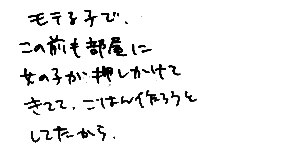 モテる子で、
この前も部屋に
女の子が押しかけて
きてて、ごはん作ろうと
してたから、